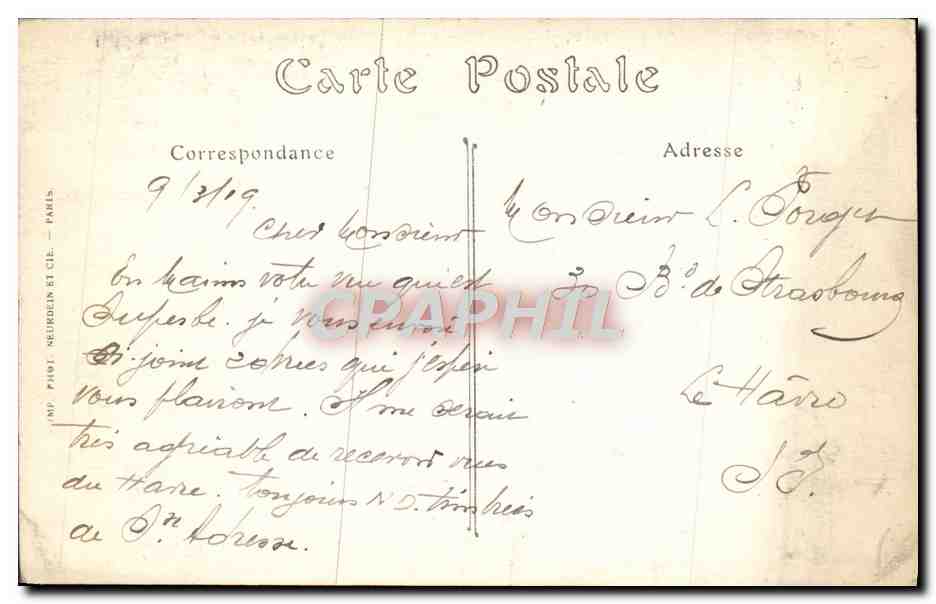 Carte Postale
Correspondance
Adresse
IMP. PHOT. NEURDEIN ET CIE. — PARIS.
9/3/19.
Cher Monsieur
En mains votre vue qui est
Superbe. je vous envoi
ci-joint 2 vues qui j'espère
vous plairont. Il me serait
très agréable de recevoir vues
du Havre. toujours N.D. timbrées
de Ste Adresse.
Monsieur L.
30 Bd de Strasbourg
Le Hâvre
S. I.
CRAPHIL